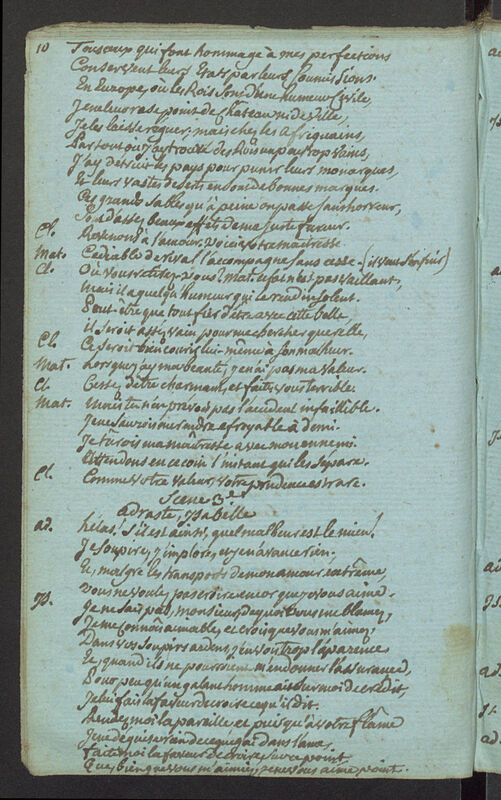 10 Tous ceux qui font hommage à mes perfections
Conservent leurs Etats par leurs soumissions.
En Europe, où les Rois sont d'une humeur civile,
Je ne leur rase point de Château ni de ville,
Je les laisse regner: mais chez les Affriquains,
Par tout où j'ay trouvé des Rois un peu trop vains,
J'ay détruit les pays pour punir leurs monarques,
Et leurs vastes deserts en sont de bonnes marques.
Ces grands sables qu'à peine on passe sans horreur,
Sont d'assez beaux effets de ma juste fureur.
Cl. Revenons à l'amour, voici votre maitresse.
Mat. Ce diable de rival l'accompagne sans cesse.
Cl. Où vous retirez vous? Mat. ce fat n'est pas vaillant,
Mais il a quelqu'humeur qui le rend insolent.
Peut-être que tout fier d'être avec cette belle
il seroit assez vain pour me chercher querelle,
Cl. Ce seroit bien courir lui-même à son malheur.
Mat. Lorsque j'ay ma beauté, j'en ai pas ma valeur.
Cl. Cessez d'être charmant, et faites vous terrible.
Mat. Mais tu n'en prévois pas l'accident infaillible.
Je ne saurois me rendre effroyable à demi.
Je tuërois ma maîtresse avec mon ennemi.
Attendons en ce coin l'instant qui les sépare.
Cl. Comme votre valeur, votre prudence est rare.
Scene 3e
adraste, ysabelle
ad. helas! s'il est ainsi, quel malheur est le mien!
Je soupire, j'implore, et je n'avance rien.
Et, malgré les transports de mon amour extrême,
vous ne voulez pas croire encor que je vous aime.
ys. Je ne sais pas, monsieur, de quoi vous me blamez,
Je me connois aimable, et crois que vous m'aimez:
Dans vos soupirs ardens, j'en vois trop l'aparence
Et, quand ils ne pourroient m'en donner l'assurance,
Pour peu qu'un galant homme ait sur moi de crédit,
Je lui fais la faveur de croire ce qu'il dit.
Rendez moi la pareille et puisqu'à votre flâme
Je ne deguise rien de ce que j'ai dans l'ame,
faites moi la faveur de croire sur ce point
Que, bien que vous m'aimiez, je ne vous aime point.